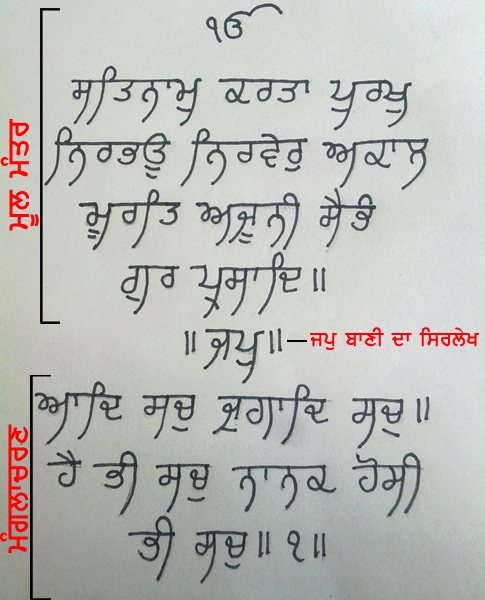 ੴ
ਸਤਿਨਾਮੁ ਕਰਤਾ ਪੁਰਖੁ
ਨਿਰਭਊ ਨਿਰਵੇਰੁ ਅਕਾਲ
ਮੂਰਤਿ ਅਜੂਨੀ ਸੈਭੰ
ਗੁਰ ਪ੍ਰਸਾਦਿ॥
ਮੂਲ ਮੰਤਰ
॥ ਜਪੁ॥
ਜਪੁ ਬਾਣੀ ਦਾ ਸਿਰਲੇਖ
ਆਦਿ ਸਚੁ ਜੁਗਾਦਿ ਸਚੁ॥
ਹੈ ਭੀ ਸਚੁ ਨਾਨਕ ਹੋਸੀ
ਭੀ ਸਚੁ॥ ੧॥
ਮੰਗਲਾਚਰਣ